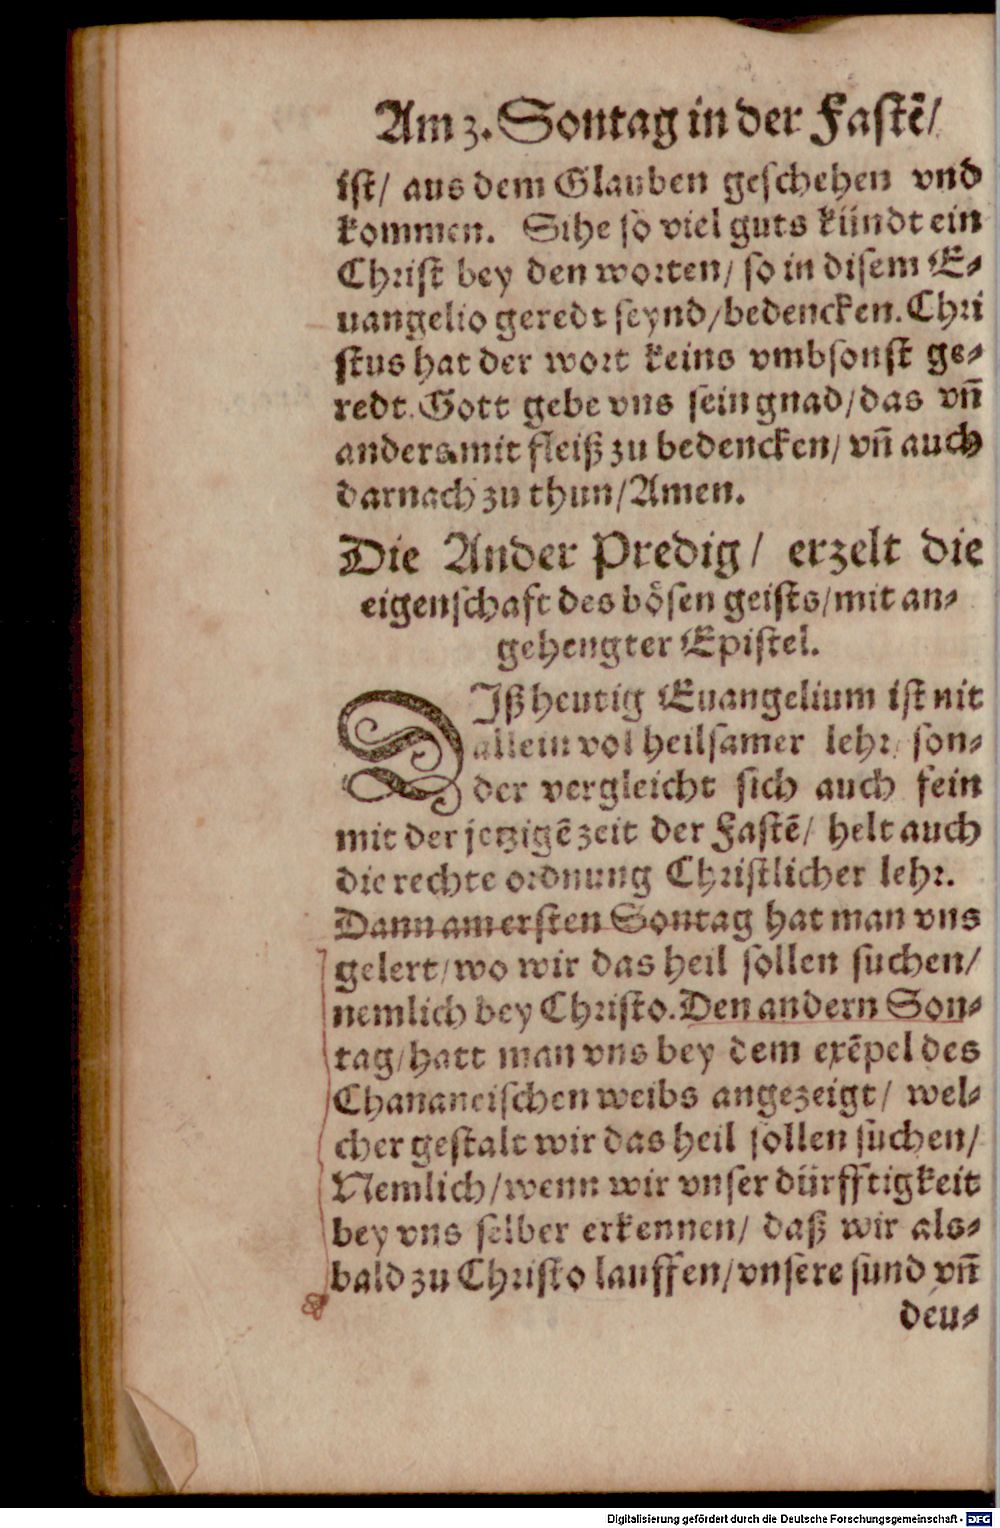 Am 3. Sontag in der Fastē/
ist/ aus dem Glauben geschehen vnd
kommen. Sihe so viel guts kündt ein
Christ bey den worten/ so in disem E-
uangelio geredt seynd/bedencken. Chri
stus hat der wort keins vmbsonst ge-
redt. Gott gebe vns sein gnad/das vn̄
anders mit fleiß zu bedencken/ vn̄ auch
darnach zu thun/Amen.
Die Ander Predig/ erzelt die
eigenschaft des bösen geists/mit an-
gehengter Epistel.
DIß heutig Euangelium ist nit
allein vol heilsamer lehr/ son-
der vergleicht sich auch fein
mit der jetzigē zeit der Fastē/ helt auch
die rechte ordnung Christlicher lehr.
Dann am ersten Sontag hat man vns
gelert/wo wir das heil sollen suchen/
nemlich bey Christo. Den andern Son-
tag/hatt man vns bey dem exēpel des
Chananeischen weibs angezeigt/ wel-
cher gestalt wir das heil sollen suchen/
Nemlich/wenn wir vnser dürfftigkeit
bey vns selber erkennen/ daß wir als-
bald zu Christo lauffen/vnsere sund vn̄
deu-
Digitalisierung gefördert durch die Deutsche Forschungsgemeinschaft - DFG